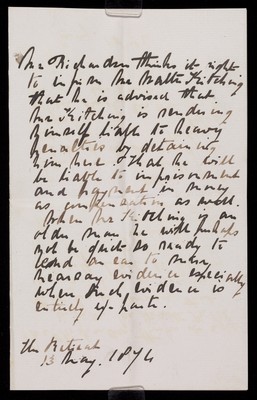 Mr Richardson thinks it right
to inform Mr Walter Kitching
that he is advised that
Mr Kitching is rendering
himself liable to heavy
penalties by detaining
him here & that he will
be liable to imprisonment
and payment in money
as compensation as well.
When Mr Kitching is an
older man he will perhaps
not be quite so ready to
lend an ear to mere
hearsay evidence especially
when such evidence is
entirely ex-parte.
The Retreat
13 May. 1874